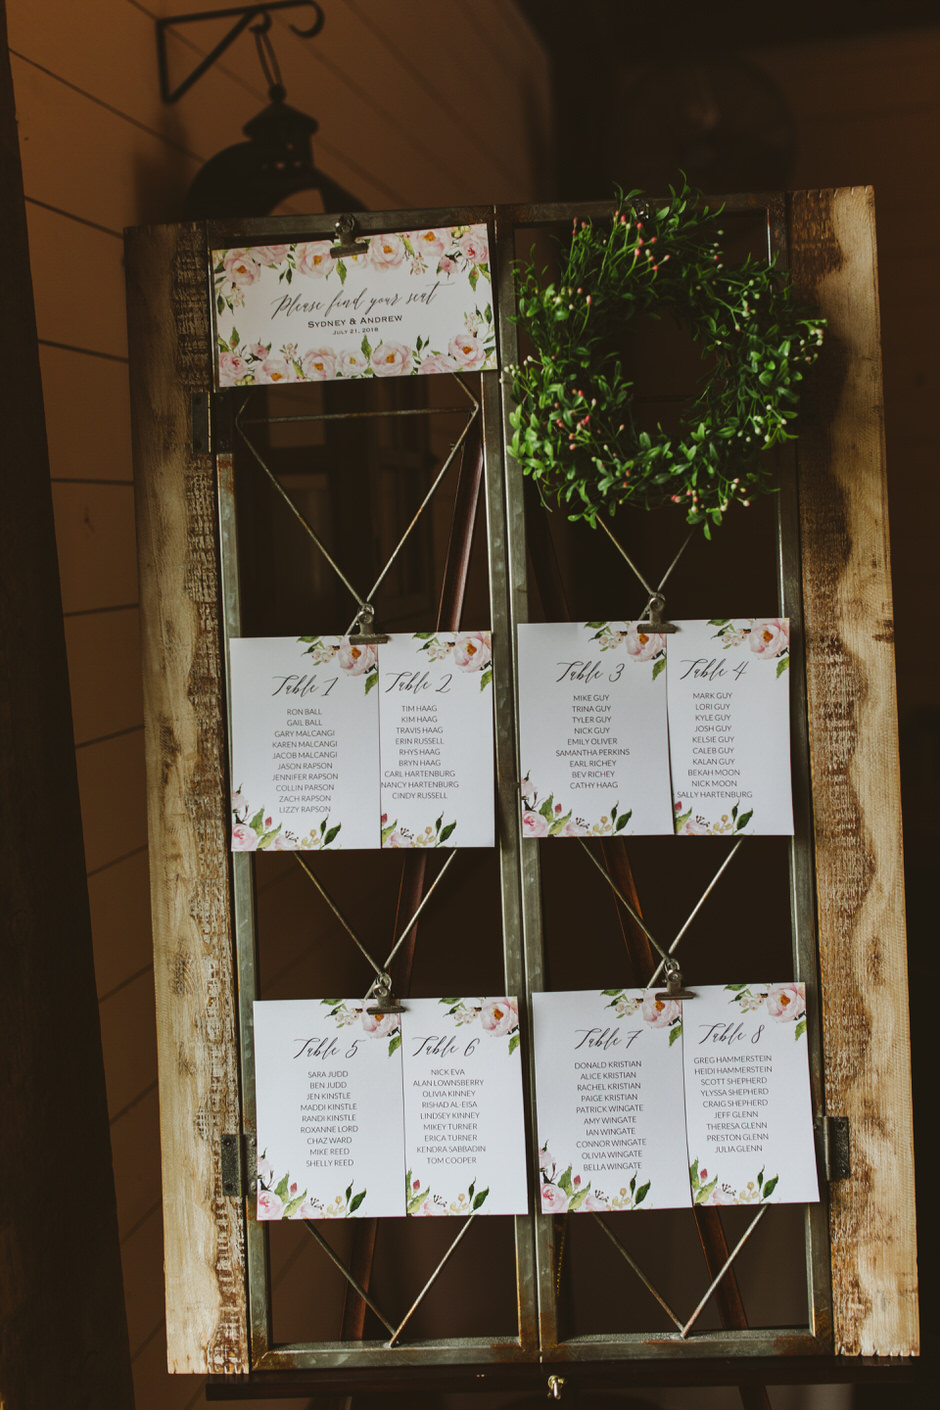 Please find your seat
SYDNEY & ANDREW
JULY 21, 2018
Table 1
RON BALL
GAIL BALL
GARY MALCANGI
KAREN MALCANGI
JACOB MALCANGI
JASON RAPSON
JENNIFER RAPSON
COLLIN PARSON
ZACH RAPSON
LIZZY RAPSON
Table 2
TIM HAAG
KIM HAAG
TRAVIS HAAG
ERIN RUSSELL
RHYS HAAG
BRYN HAAG
CARL HARTENBURG
NANCY HARTENBURG
CINDY RUSSELL
Table 3
MIKE GUY
TRINA GUY
TYLER GUY
NICK GUY
EMILY OLIVER
SAMANTHA PERKINS
EARL RICHEY
BEV RICHEY
CATHY HAAG
Table 4
MARK GUY
LORI GUY
KYLE GUY
JOSH GUY
KELSIE GUY
CALEB GUY
KALAN GUY
BEKAH MOON
NICK MOON
SALLY HARTENBURG
Table 5
SARA JUDD
BEN JUDD
JEN KINSTLE
MADDI KINSTLE
RANDI KINSTLE
ROXANNE LORD
CHAZ WARD
MIKE REED
SHELLY REED
Table 6
NICK EVA
ALAN LOWNSBERRY
OLIVIA KINNEY
RISHAD AL-EISA
LINDSEY KINNEY
MIKEY TURNER
ERICA TURNER
KENDRA SABBADIN
TOM COOPER
Table 7
DONALD KRISTIAN
ALICE KRISTIAN
RACHEL KRISTIAN
PAIGE KRISTIAN
PATRICK WINGATE
AMY WINGATE
IAN WINGATE
CONNOR WINGATE
OLIVIA WINGATE
BELLA WINGATE
Table 8
GREG HAMMERSTEIN
HEIDI HAMMERSTEIN
SCOTT SHEPHERD
YLYSSA SHEPHERD
CRAIG SHEPHERD
JEFF GLENN
THERESA GLENN
PRESTON GLENN
JULIA GLENN